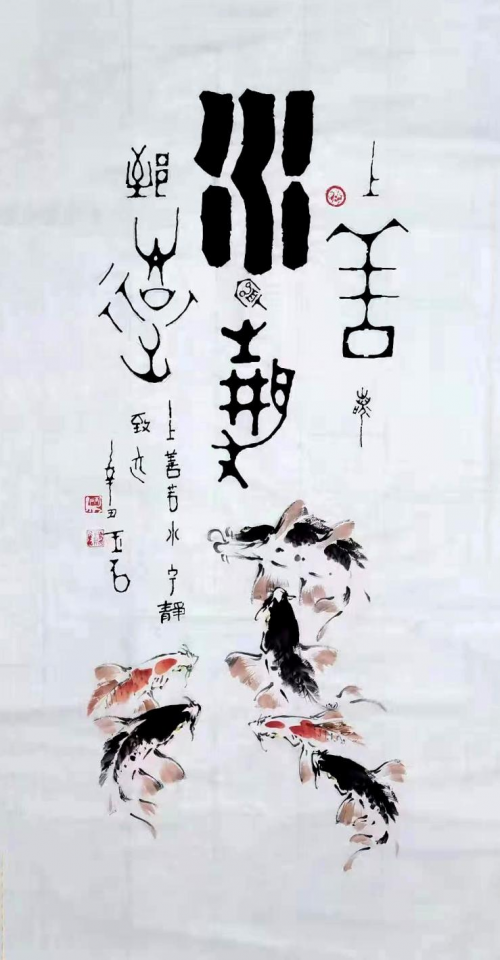 上善若
水宁靜
致遠
上善若水宁靜
致远
辛丑玉石